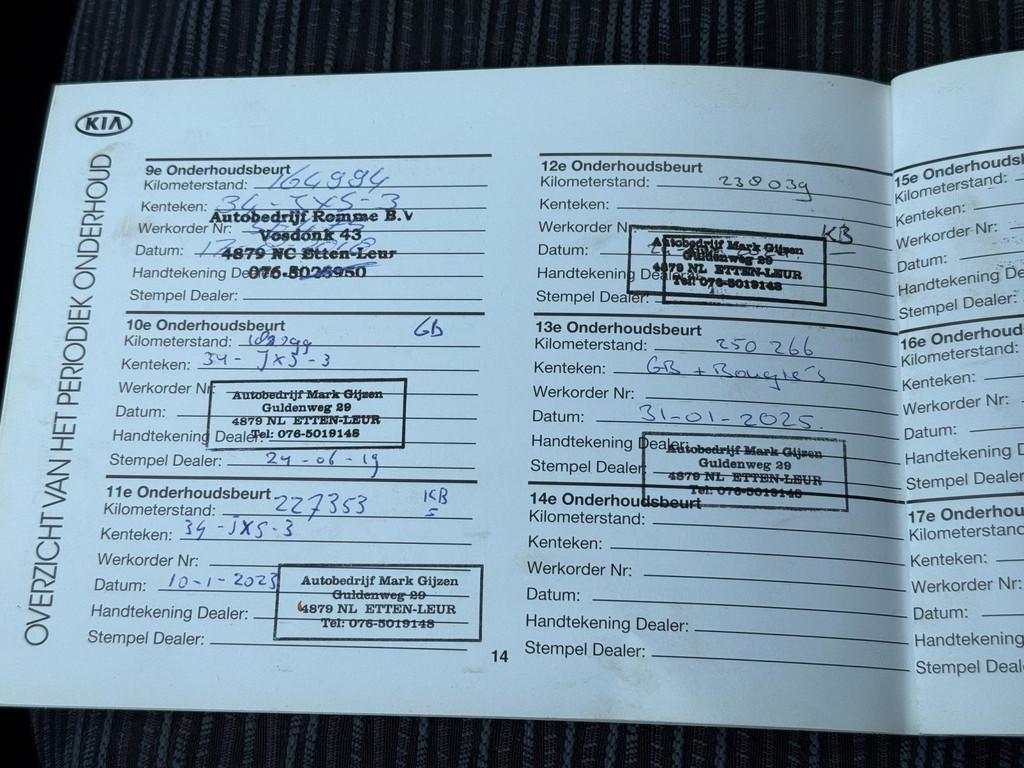 KIA
OVERZICHT VAN HET PERIODIEK ONDERHOUD
9e Onderhoudsbeurt
Kilometerstand: 164994
Kenteken: 34-JXS-3
Werkorder Nr:
Datum:
Handtekening Dealer:
Stempel Dealer:
Autobedrijf Romme B.V
Vosdonk 43
4879 NC Etten-Leur
076-5025950
10e Onderhoudsbeurt GB
Kilometerstand:
Kenteken: 34-JXS-3
Werkorder Nr:
Datum:
Handtekening Dealer:
Stempel Dealer: 24-06-19
Autobedrijf Mark Gijzen
Guldenweg 29
4879 NL ETTEN-LEUR
Tel: 076-5019148
11e Onderhoudsbeurt KB
Kilometerstand: 227353
Kenteken: 34-JXS-3
Werkorder Nr:
Datum: 10-1-2023
Handtekening Dealer:
Stempel Dealer:
Autobedrijf Mark Gijzen
Guldenweg 29
4879 NL ETTEN-LEUR
Tel: 076-5019148
12e Onderhoudsbeurt
Kilometerstand: 238039
Kenteken:
Werkorder Nr: KB
Datum:
Handtekening Dealer:
Stempel Dealer:
Autobedrijf Mark Gijzen
Guldenweg 29
4879 NL ETTEN-LEUR
Tel: 076-5019148
13e Onderhoudsbeurt
Kilometerstand: 250 266
Kenteken: GB + Bougie's
Werkorder Nr:
Datum: 31-01-2025.
Handtekening Dealer:
Stempel Dealer:
Autobedrijf Mark Gijzen
Guldenweg 29
4879 NL ETTEN-LEUR
Tel: 076-5019148
14e Onderhoudsbeurt
Kilometerstand:
Kenteken:
Werkorder Nr:
Datum:
Handtekening Dealer:
Stempel Dealer:
14
15e Onderhouds
Kilometerstand:
Kenteken:
Werkorder Nr:
Datum:
Handtekening De
Stempel Dealer:
16e Onderhoud
Kilometerstand:
Kenteken:
Werkorder Nr:
Datum:
Handtekening D
Stempel Dealer
17e Onderhou
Kilometerstand
Kenteken:
Werkorder Nr:
Datum:
Handtekening
Stempel Deal